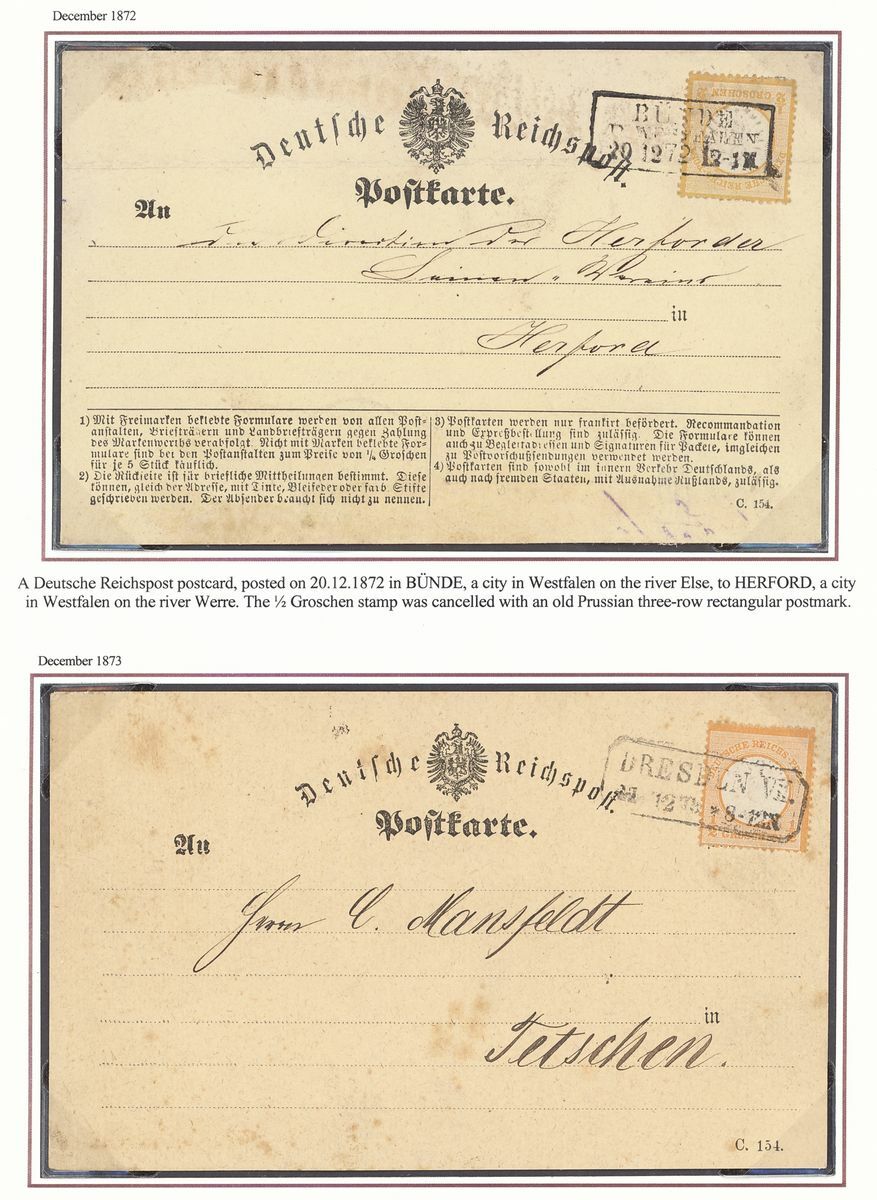 December 1872
Deutsche Reichspost.
Postkarte.
BÜNDE
WESTFALEN
20 12 72 12-1N
2 GROSCHEN 2
An
den Direction des Herforder
Leinen-Vereins
in
Herford
1) Mit Freimarken beklebte Formulare werden von allen Post-
anstalten, Briefträgern und Landbriefträgern gegen Zahlung
des Markenwerths verabfolgt. Nicht mit Marken beklebte For-
mulare sind bei den Postanstalten zum Preise von ¼ Groschen
für je 5 Stück käuflich.
2) Die Rückseite ist für briefliche Mittheilungen bestimmt. Diese
können, gleich der Adresse, mit Tinte, Bleifeder oder farb. Stifte
geschrieben werden. Der Absender braucht sich nicht zu nennen.
3) Postkarten werden nur frankirt befördert. Recommandation
und Expreßbestellung sind zulässig. Die Formulare können
auch zu Begleitadressen und Signaturen für Packete, imgleichen
zu Postvorschußsendungen verwendet werden.
4) Postkarten sind sowohl im innern Verkehr Deutschlands, als
auch nach fremden Staaten, mit Ausnahme Rußlands, zulässig.
C. 154.
A Deutsche Reichspost postcard, posted on 20.12.1872 in BÜNDE, a city in Westfalen on the river Else, to HERFORD, a city
in Westfalen on the river Werre. The ½ Groschen stamp was cancelled with an old Prussian three-row rectangular postmark.
December 1873
Deutsche Reichspost.
Postkarte.
DEUTSCHE REICHS-POST
DRESDEN VII.
12 73 * 8-12N
An
Herrn C. Mansfeldt
in
Tetschen.
C. 154.